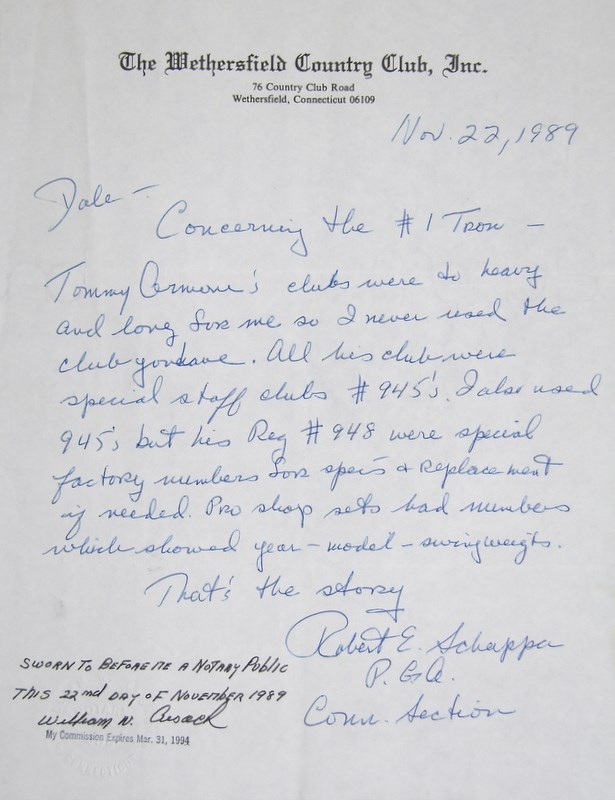 The Wethersfield Country Club, Inc.
76 Country Club Road
Wethersfield, Connecticut 06109
Nov. 22, 1989
Dale -
Concerning the #1 Iron -
Tommy Armour's clubs were to heavy
and long for me so I never used the
club you have. All his club were
special staff clubs #945's. I also used
945's but his Reg #948 were special
factory numbers for spec's & Replacement
if needed. Pro shop sets had numbers
which showed year - model - swingweights.
That's the story
Robert E. Schappa
P.G.A.
Conn. Section
SWORN TO BEFORE ME A NOTARY PUBLIC
THIS 22nd DAY OF NOVEMBER 1989
William N. Cusack
My Commission Expires Mar. 31, 1994